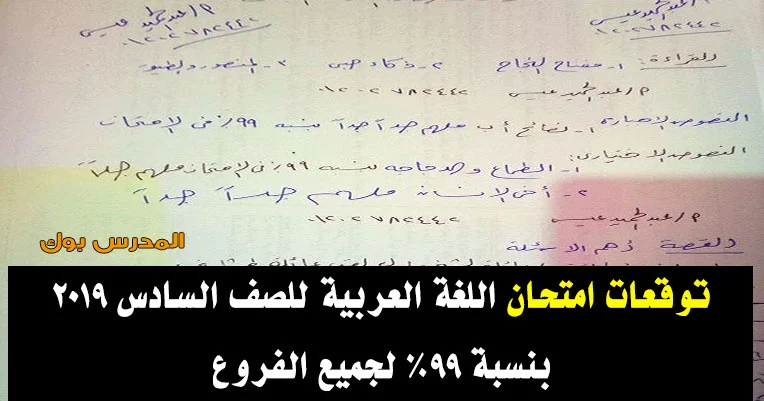 م/عبد الحميد عيسى
٠١٢٠٢٧٨٢٤٤٢
م/عبد الحميد عيسى
٠١٢٠٢٧٨٢٤٤٢
القراءة: ١- مفتاح النجاح ٢- ذكاء صبى ٣- المنصور
م/عبد الحميد عيسى ٠١٢٠٢٧٨٢٤٤٢
١- نصائح أب ملهم جداً جداً بنسبه ٩٩٪ فى الإمتحان
النصوص الاختيارى:
١- الطماع والدجاجه بنسبه ٩٩٪ فى الإمتحان ملهم جداً
٢- أخى الإنسان ملهم جداً جداً
م/عبد الحميد عيسى ٠١٢٠٢٧٨٢٤٤٢
القصة أهم الاسئلة
المدرس بوك
توقعات امتحان اللغة العربية للصف السادس ٢٠١٩
بنسبة ٩٩٪ لجميع الفروع